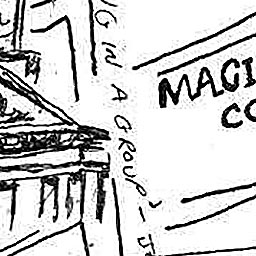 G IN A GROUP' - J
MAGI
CO